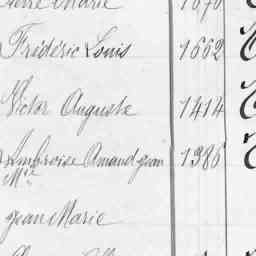 Marie 1676
Frédéric Louis 1662
Victor Auguste 1414
Ambroise Amand jean 1386
Mie
jean Marie